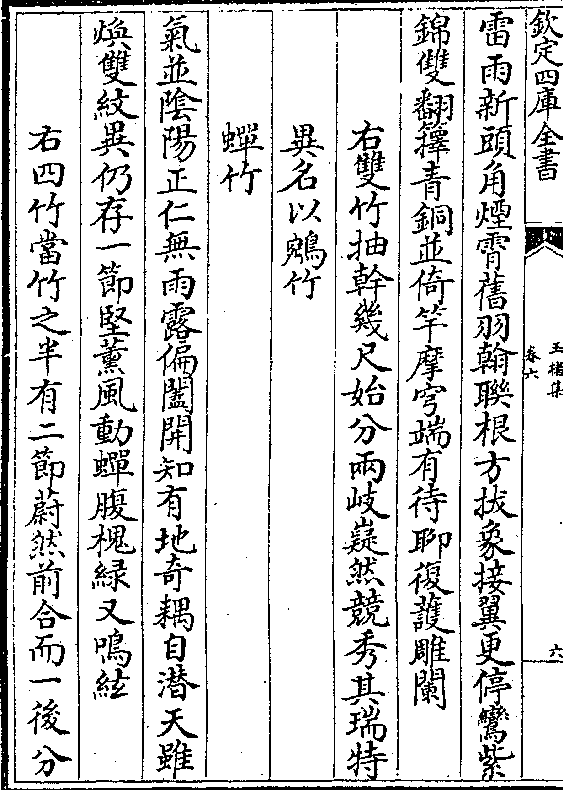 欽定四庫全書
玉楮集
卷六
六
雷雨新頭角煙霄舊羽翰聯根方拔象接翼更停鸞紫
錦雙翻籜青銅並倚竿摩穹端有待聊復護雕闌
右雙竹抽幹幾尺始分兩岐嶷然競秀其瑞特
異名以鶼竹
蟬竹
氣並陰陽正仁無雨露偏闔開知有地奇耦自潛天雖
煥雙紋異仍存一節堅薰風動蟬腹槐緑又鳴絃
右四竹當竹之半有二節蔚然前合而一後分